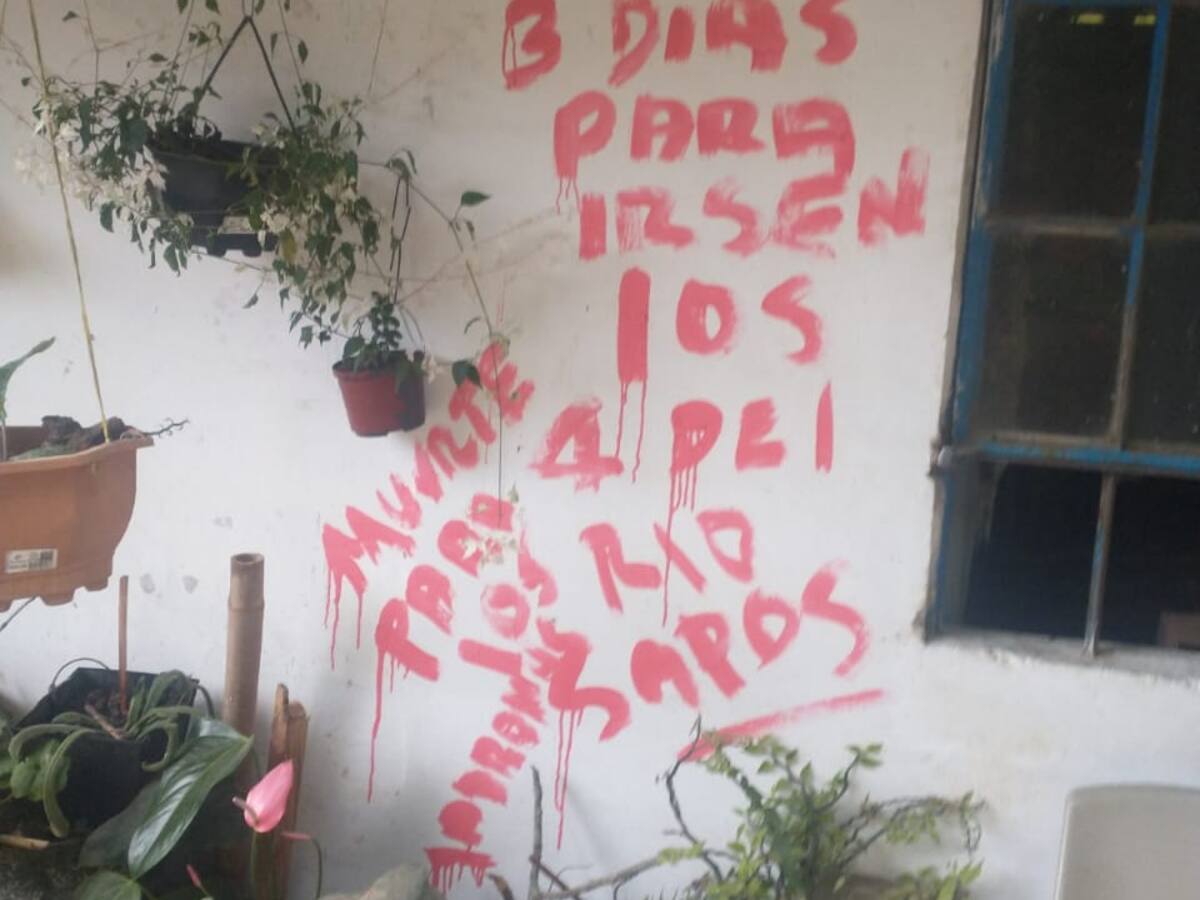 3 DIAS
PARA
IRSEN
lOS
4 DEl
RIO
SAPOS
MUURTE
PARA
lOS
lADRONES